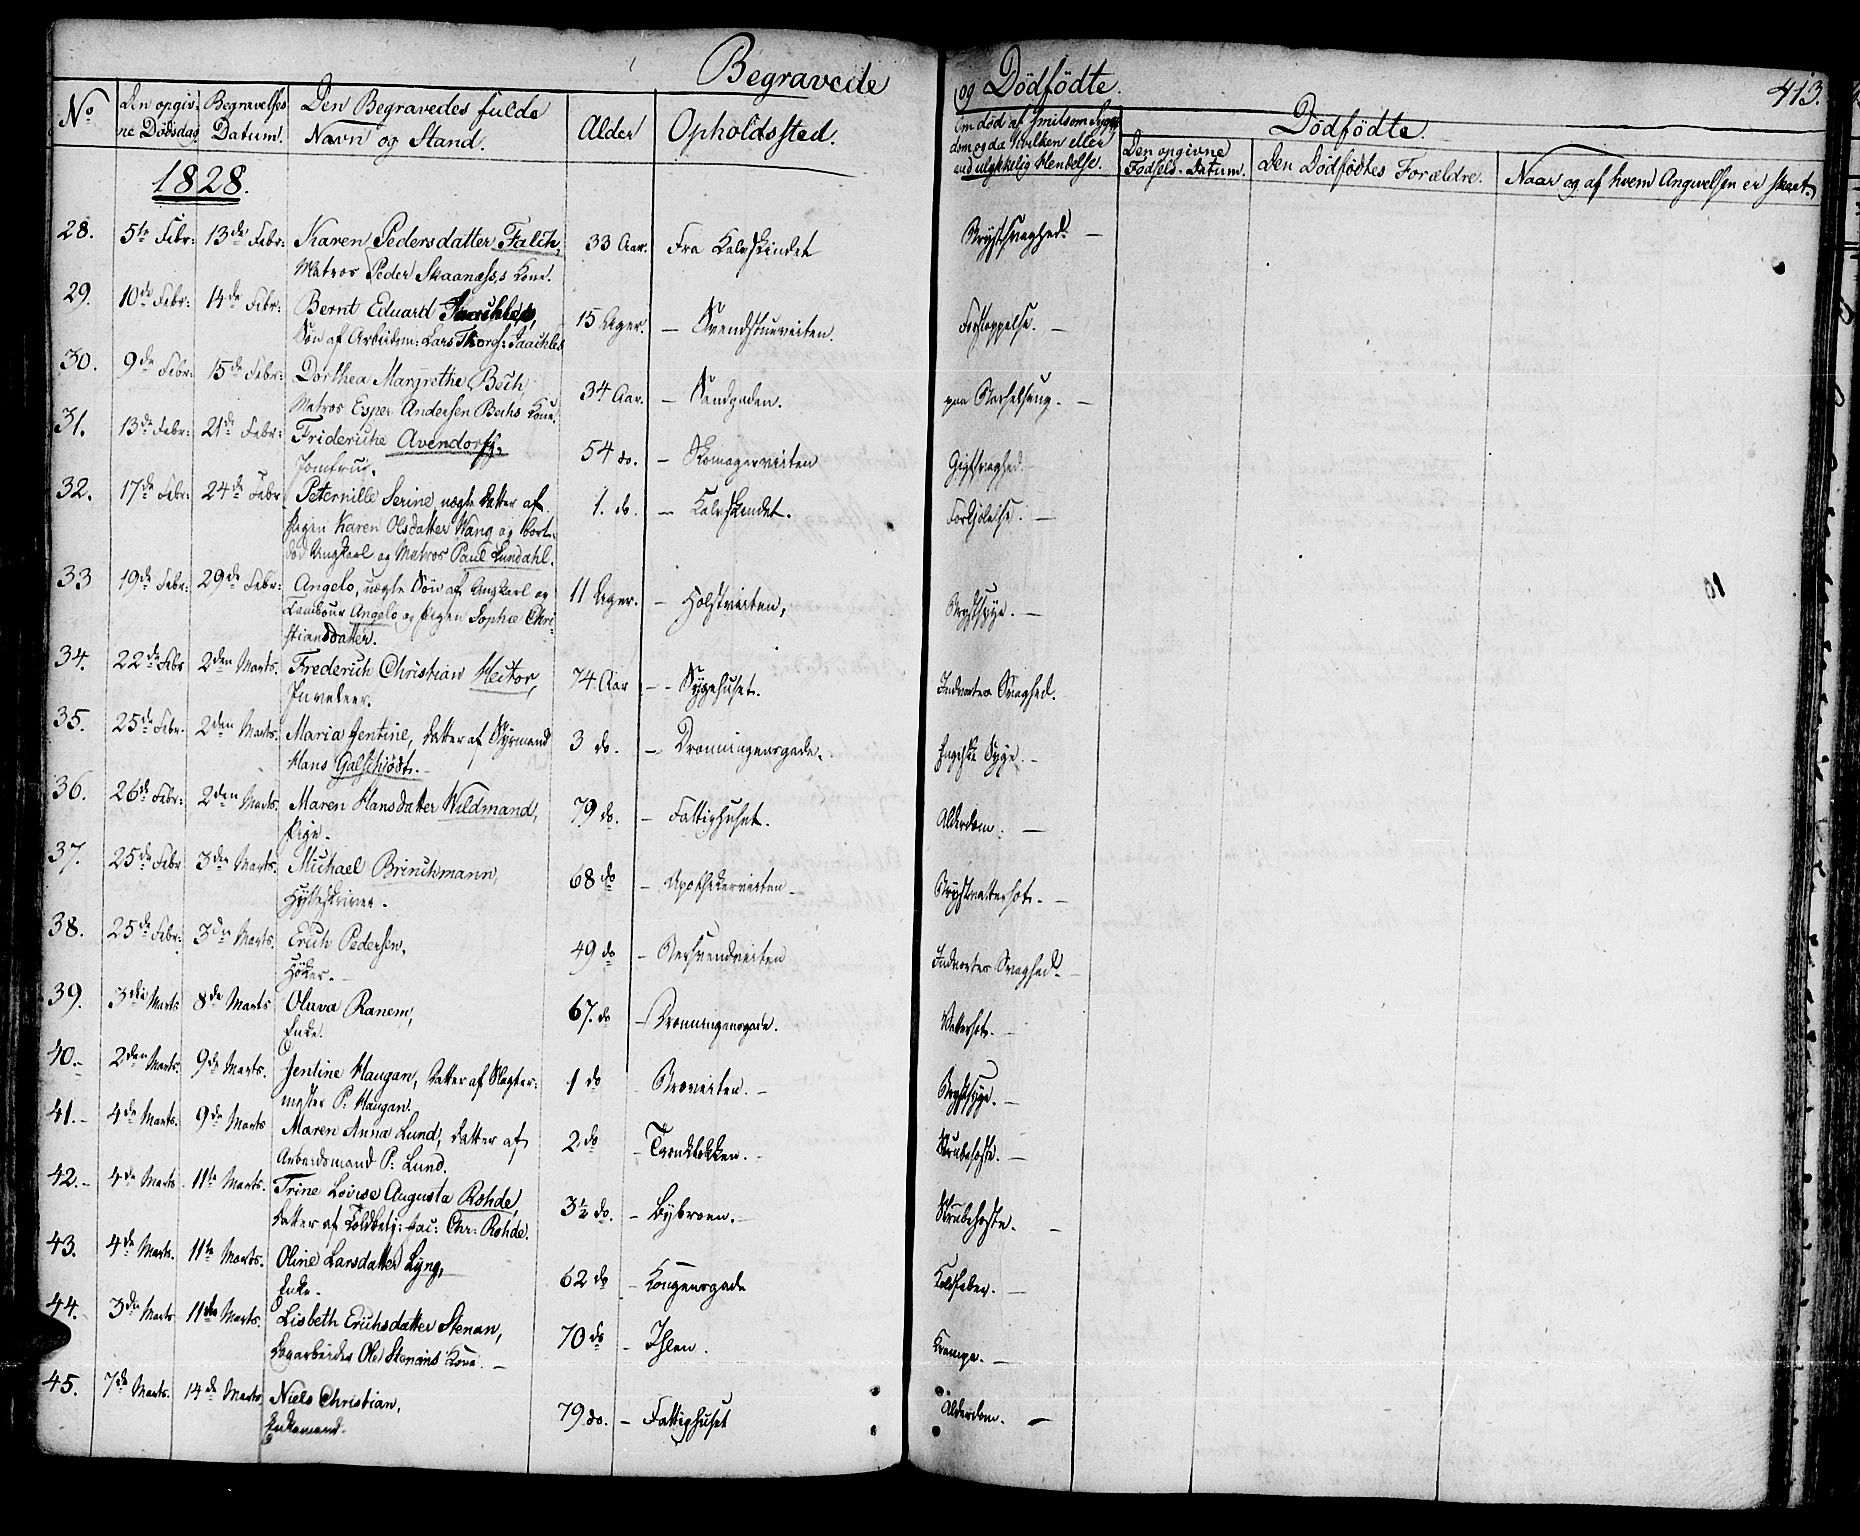 Begravede og Dödfödte.
413.
No
Den opgiv-
ne Dödsdag
Begravelses
Datum.
Den Begravedes fulde
Navn og Stand.
Alder
Opholdssted.
Om død af Smitsom Syg-
dom og da hvilken eller
ved ulykkelig Hendelse.
Dödfödte.
Den opgivne
Fødsels-Datum.
Den Dödfödtes Forældre.
Naar og af hvem Angivelsen er skeet.
1828.
28. 5te Febr: 13de Febr: Karen Pedersdatter Falch, 33 Aar. Fra Kalvskindet Brystsvaghed. —
Matros Peder Skaanæss,s Kone.
29. 10de Febr: 14de Febr: Bernt Eduard 15 Uger. — Svendstuveiten. Forstoppelse. —
Søn af Arbeidsm: Lars Thorgs:
30. 9de Febr: 15de Febr: Dorthea Margrethe Bech, 34 Aar. — Sandgaden. paa Barselseng. —
Matros Esper Andersen Bechs Kone.
31. 13de Febr: 21de Febr: Frideriche 54 do. — Skomagerveiten Gigtsvaghed.
Jomfrue.
32. 17de Febr: 24de Febr Peternille Serine, uægte Datter af 1. do. — Kalvskindet. Forkjølelse. —
Pigen Karen Olsdatter Wang og bort-
død Ungkarl og Matros Paul Lundahl.
33 19de Febr: 29de Febr: Angelo, uægte Søn af Ungkarl og 11 Uger. — Holstveiten, Brystsyge. —
Tambour Angelo og Pigen Sophie Chri-
stiansdatter.
34. 22de Febr 2den Marts. Frederich Christian Hector, 74 Aar — Sygehuset. Indvortes Svaghed.
Juveleer.
35. 25de Febr. 2den Marts. Maria Jentine, Datter af Styrmand 3 do. — Dronningensgade. Engelske Syge. —
Hans Galschiödt.
36. 26de Febr: 2den Marts. Maren Hansdatter Wildmand, 79 do. — Fattighuset. Alderdom. —
Pige.
37. 25de Febr 3den Marts. Michael Brinchmann, 68 do — Apothekerveiten Brystvattersot. —
Hytteskriver.
38. 25de Febr: 3den Marts. Erich Pedersen, 49 do — Bersvendveiten Indvortes Svaghed. —
Höker.
39. 3die Marts 8de Marts Olava Ranem, 67. do — Dronningensgade. Vattersot. —
Enke.
40. 2den Marts. 9de Marts. Jentine Haugan, Datter af Slagter- 1 do — Broveiten. — Brystsyge. —
mester P: Haugan.
41. 4de Marts. 9de Marts Maren Anna Lund, Datter af 2 do — Tronkløkken. Strubehoste. —
Arbeidsmand P: Lund.
42. 4de Marts 11te Marts. Trine Lovise Augusta Rohde, 3½ do. — Bybroen. Strubehoste. —
Datter af Toldbetj: Jac: Chr: Rohde.
43. 4de Marts. 11te Marts. Oline Larsdatter Lyng, 62 do — Kongensgade Koldfeber. —
Enke.
44. 3die Marts 11te Marts. Lisbeth Erichsdatter Stenan, 70 do — Ihlen. Krampe. —
Dagarbeider Ole Stenans Kone. —
45. 7de Marts. 14de Marts Niels Christian, 79 do. — Fattighuset Alderdom. —
Enkemand.